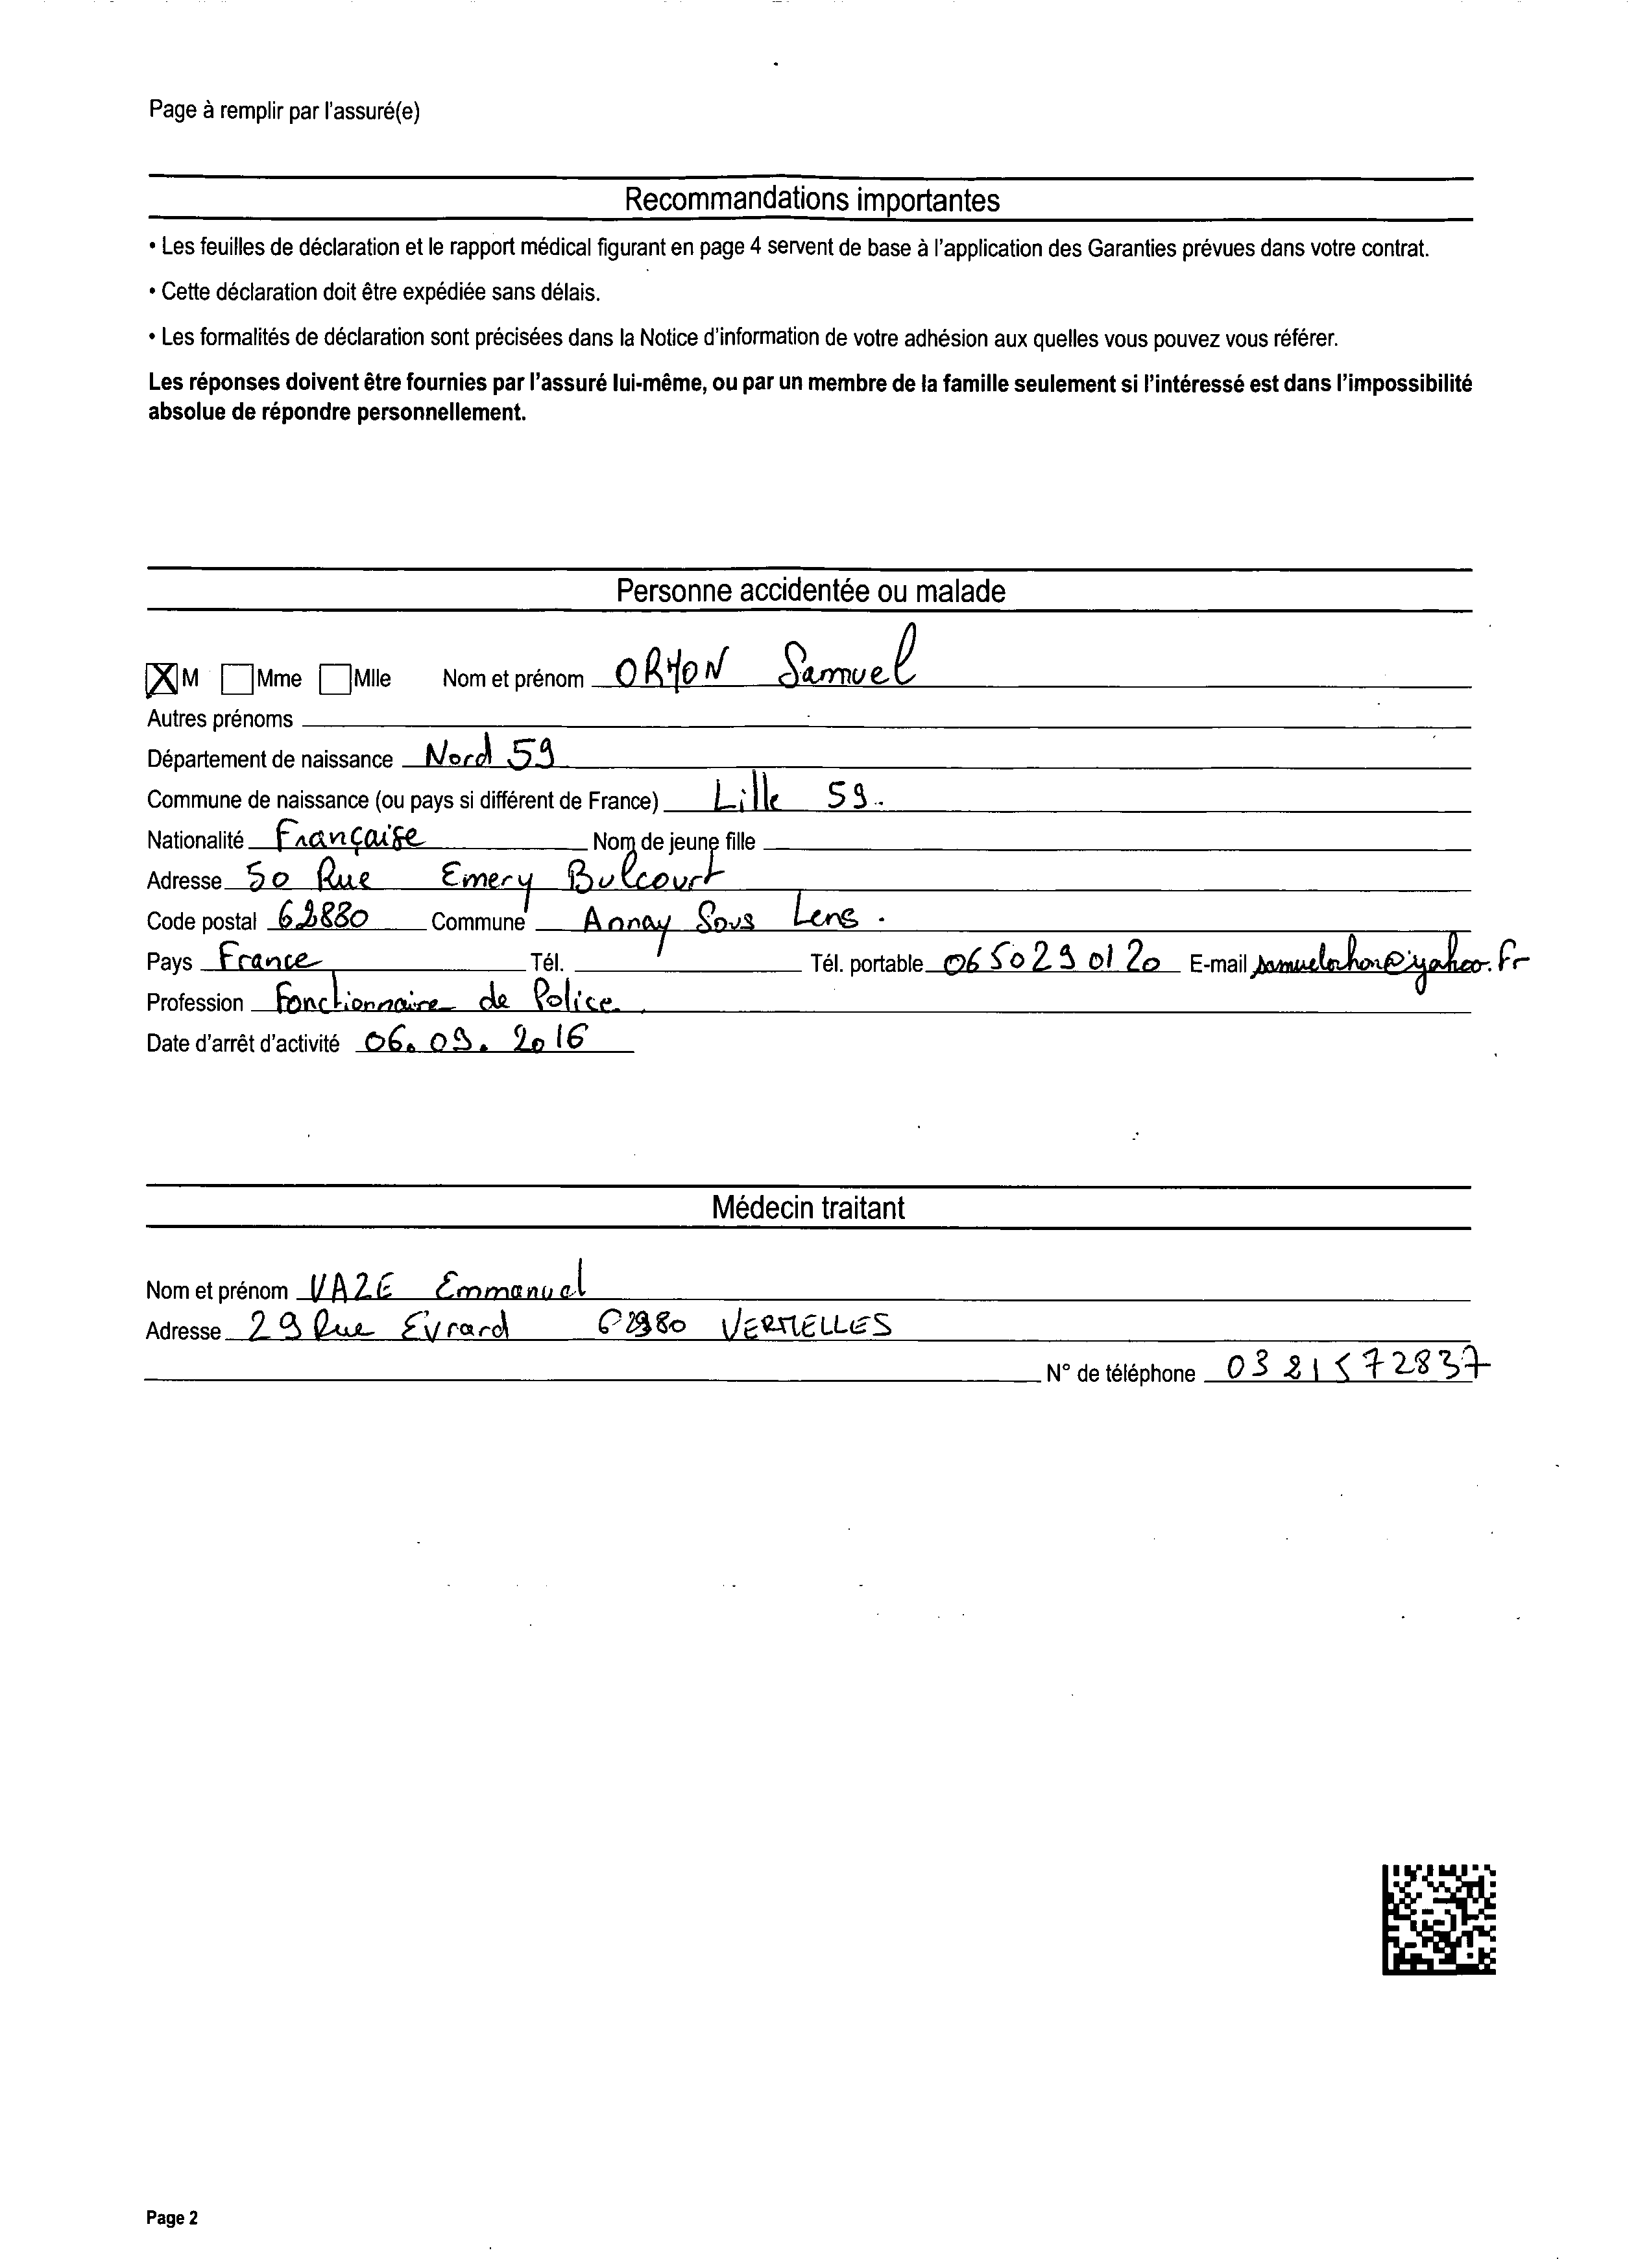 Page à remplir par l'assuré(e)
Recommandations importantes
• Les feuilles de déclaration et le rapport médical figurant en page 4 servent de base à l'application des Garanties prévues dans votre contrat.
• Cette déclaration doit être expédiée sans délais.
• Les formalités de déclaration sont précisées dans la Notice d'information de votre adhésion aux quelles vous pouvez vous référer.
Les réponses doivent être fournies par l'assuré lui-même, ou par un membre de la famille seulement si l'intéressé est dans l'impossibilité
absolue de répondre personnellement.
Personne accidentée ou malade
X M Mme Mlle Nom et prénom Samuel
Autres prénoms
Département de naissance Nord 59
Commune de naissance (ou pays si différent de France) Lille 59.
Nationalité Française Nom de jeune fille
Adresse 50 Rue Emery Bulcourt
Code postal 62880 Commune Annay Sous Lens.
Pays France Tél. Tél. portable 0650290120 E-mail
Profession Fonctionnaire de Police.
Date d'arrêt d'activité 06.09.2016
Médecin traitant
Nom et prénom VAZE Emmanuel
Adresse 29 Rue Evrard 62980 VERMELLES
N° de téléphone 0321572837
Page 2